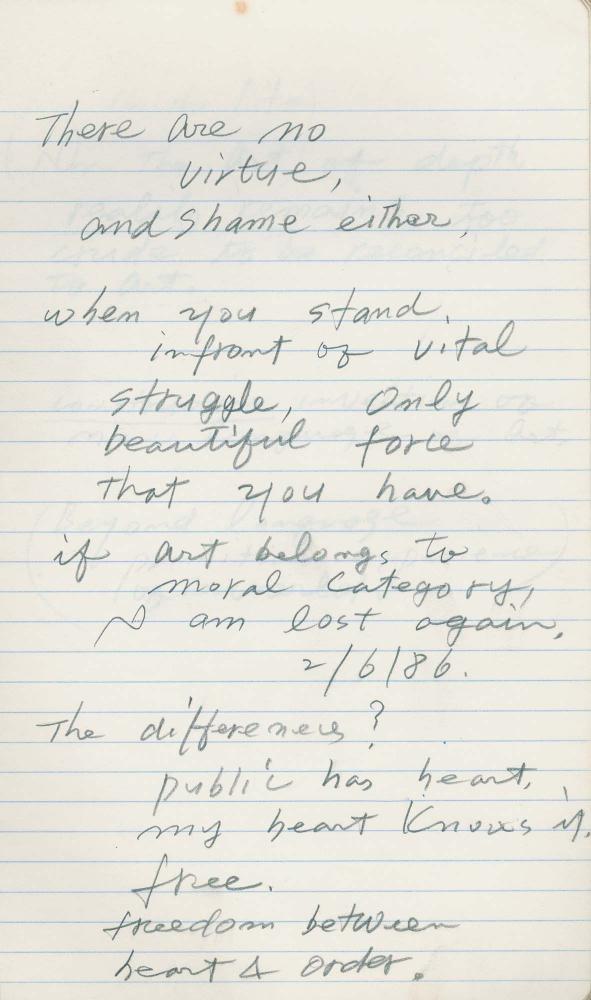 There are no
virtue,
and shame either,
when you stand.
infront of vital
struggle, Only
beautiful force
that you have.
if art belongs to
moral category,
I am lost again,
2/6/86.
The differences?
public has heart,
my heart knows
free.
freedom between
heart & order.